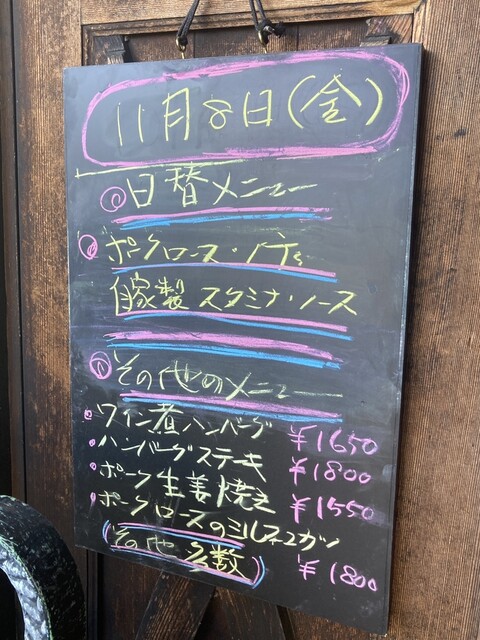 11月8日(金)
日替メニュー
ポークロース・ソテー
自家製 スタミナ・ソース
その他のメニュー
ワイン煮ハンバーグ ¥1650
ハンバーグステキ ¥1800
ポーク生姜焼き ¥1550
ポークロースのミルフィユカツ
(その他 多数) ¥1800